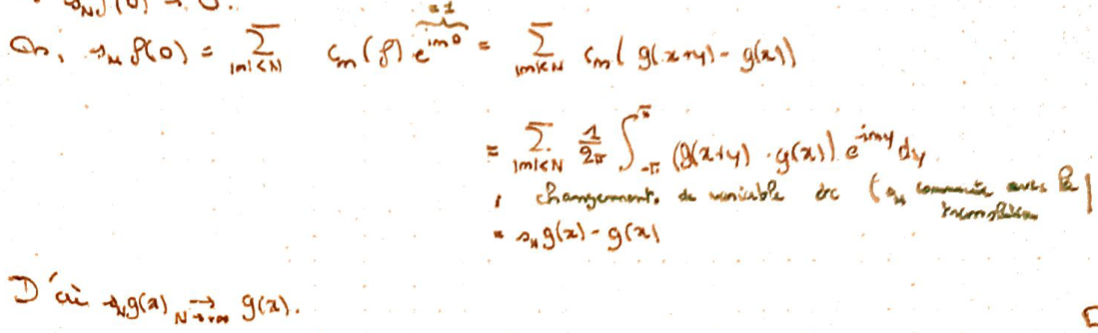 s_N f(0) → 0.
Or, s_N f(0) = ∑_{|m|≤N} c_m(f) e^{im0} (=1) = ∑_{|m|≤N} c_m( g(x+y) - g(x))
= ∑_{|m|≤N} 1/2π ∫_{-π}^{π} (g(x+y) - g(x)) e^{-imy} dy
changement de variable etc (s_N commute avec la translation)
= s_N g(x) - g(x)
D'où s_N g(x) →_{N→+∞} g(x).